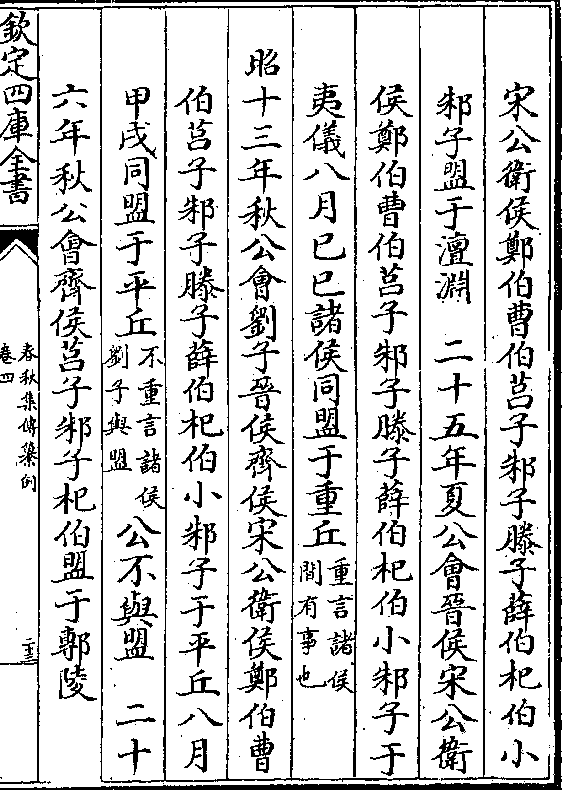 宋公衛侯鄭伯曹伯莒子邾子滕子薛伯杞伯小
邾子盟于澶淵　二十五年夏公會晉侯宋公衛
侯鄭伯曹伯莒子邾子滕子薛伯杞伯小邾子于
夷儀八月己巳諸侯同盟于重丘重言諸侯間有事也
昭十三年秋公會劉子晉侯齊侯宋公衛侯鄭伯曹
伯莒子邾子滕子薛伯杞伯小邾子于平丘八月
甲戌同盟于平丘不重言諸侯劉子與盟公不與盟　二十
六年秋公會齊侯莒子邾子杞伯盟于鄟陵
欽定四庫全書
春秋集傳纂例
卷四
二十三